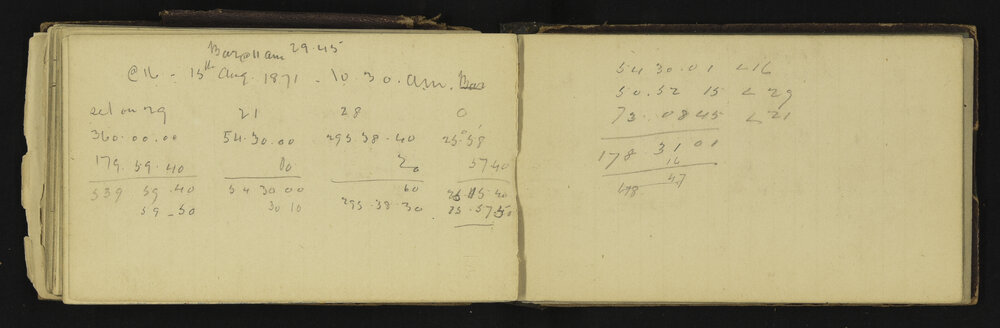 Bar@11am 29.45
@16 - 15th Aug. 1871 - 10.30.am. Bar
set on 29 21 28 0
360.00.00 54.30.00 295.38.40 25°58'
179.59.40 00 20 57.40
539 59.40 54 30 00 60 25 115.40
59-50 30 10 295.38.30 25.57.50
54 30.01 <16
50.52 15 < 29
73.0845 <21
178 31 01
16
178 47